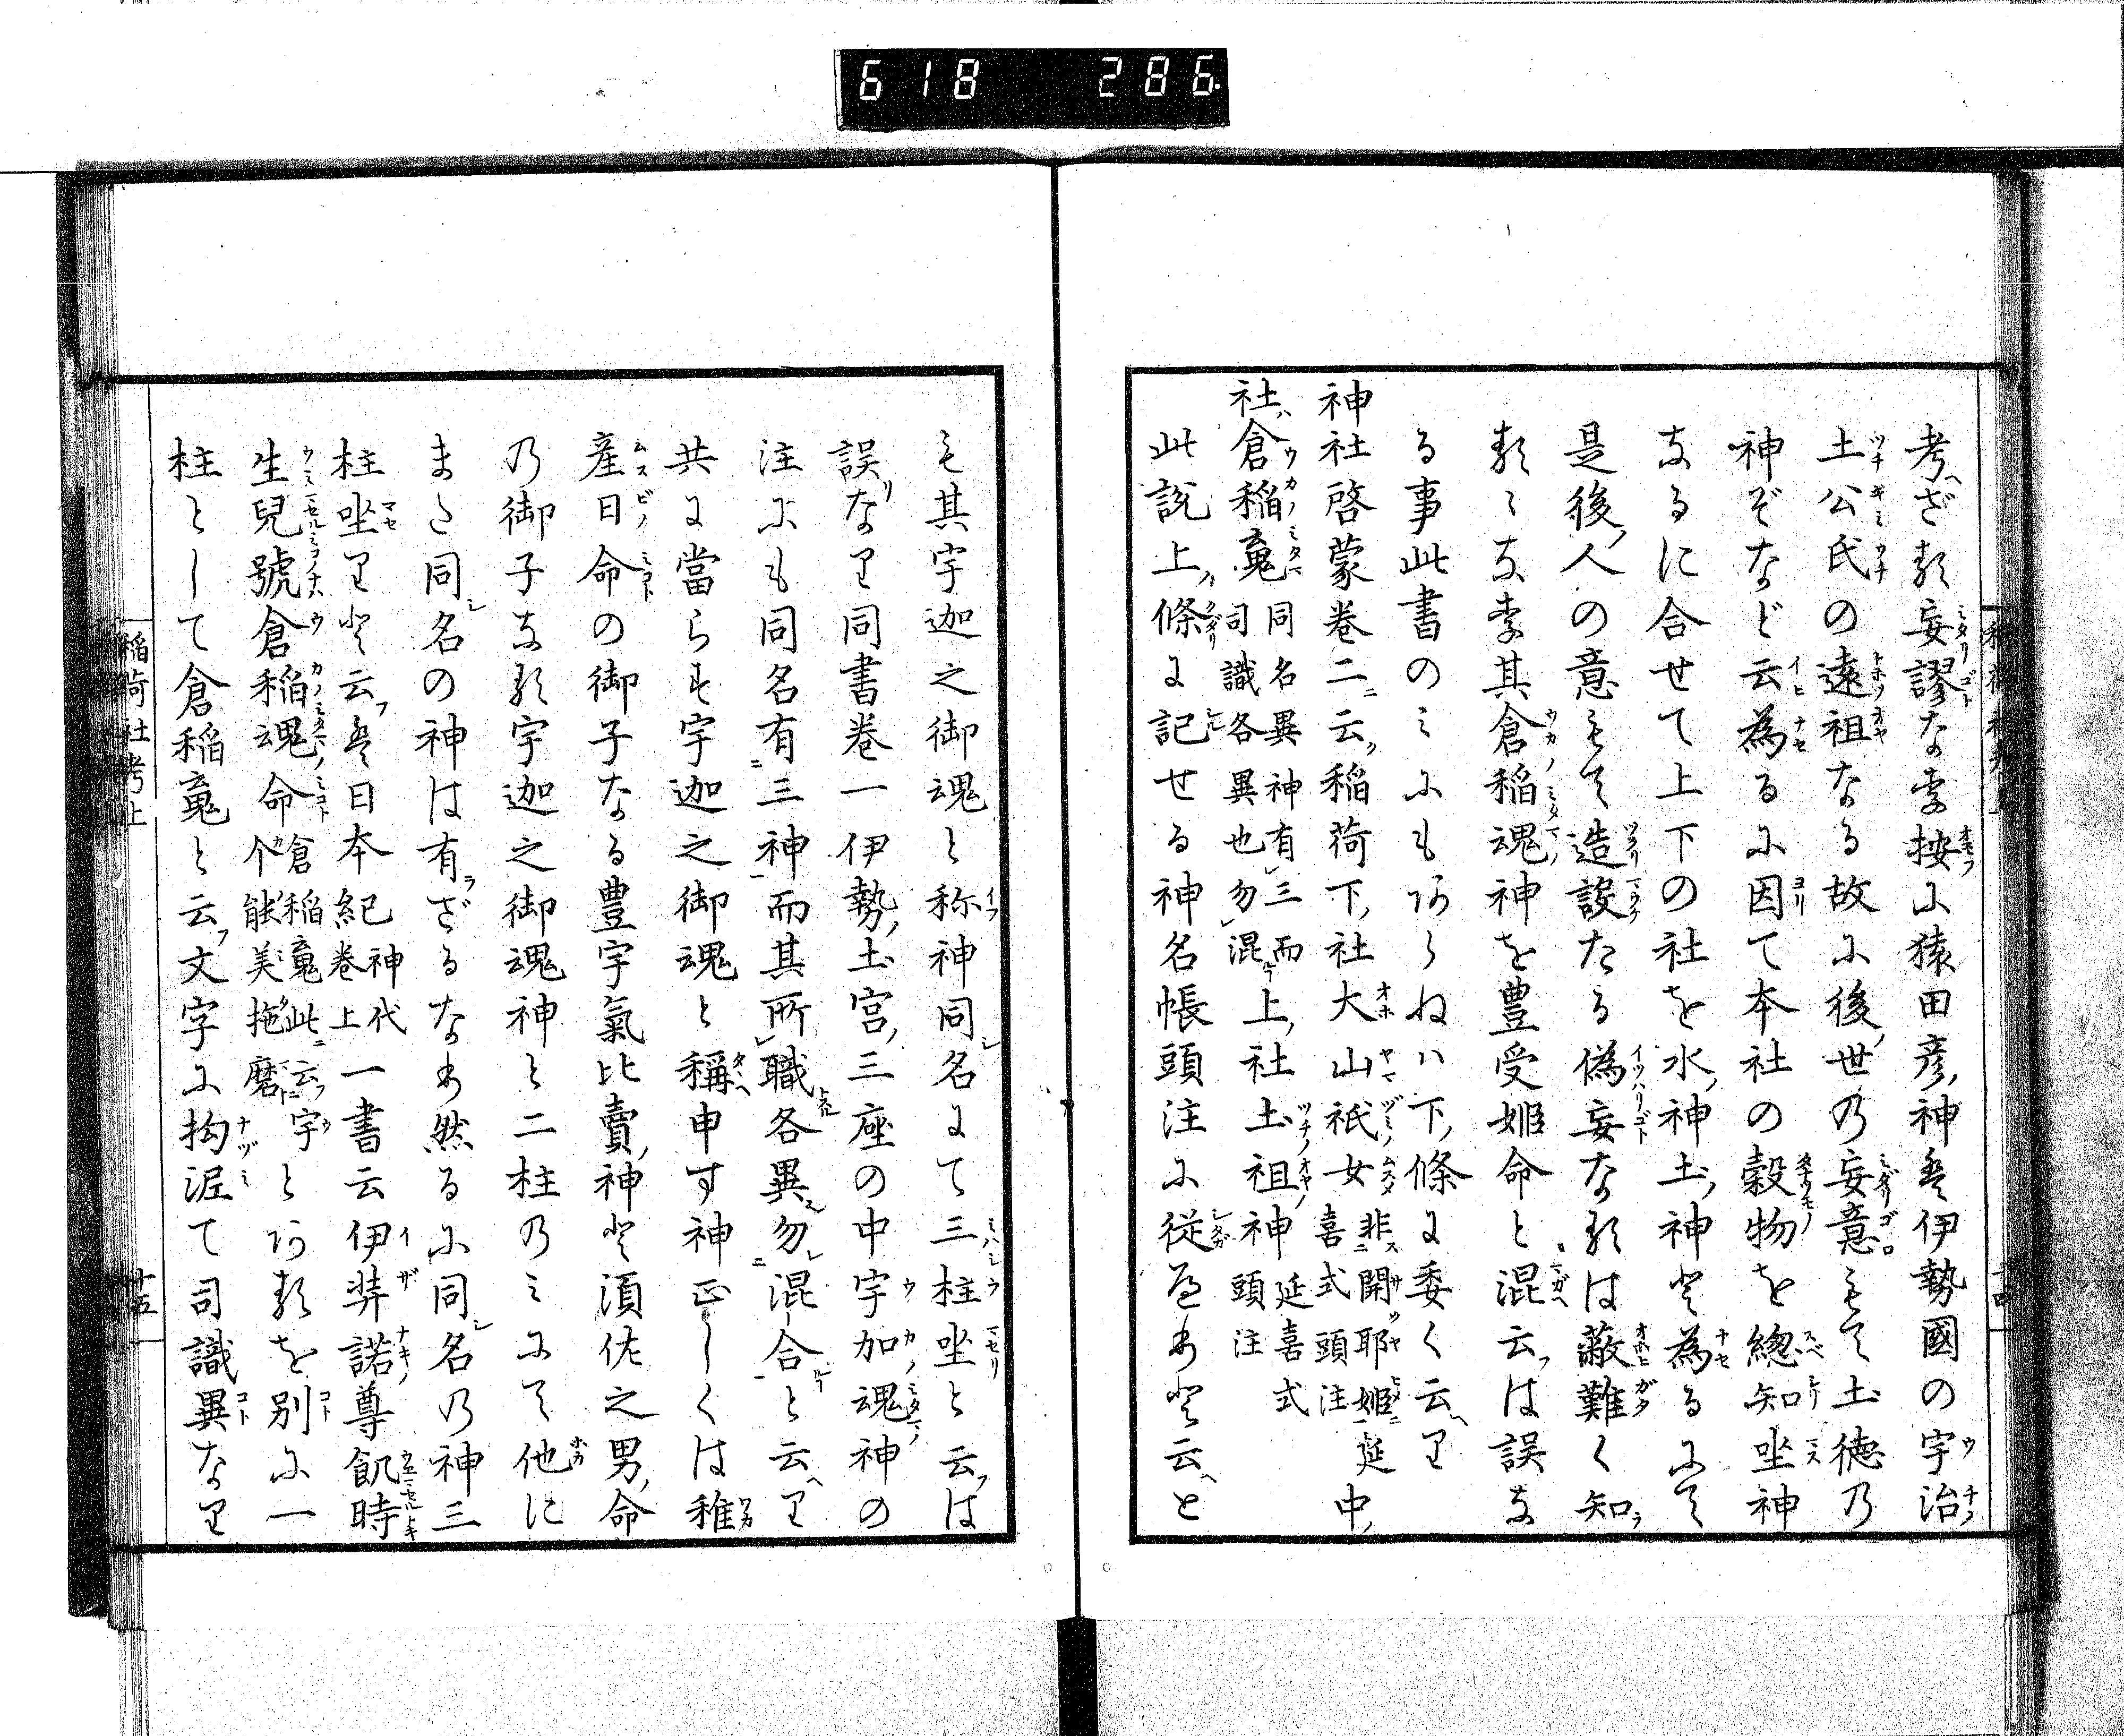 618 286
考ざる妄謬なり按に猿田彦神は伊勢國の宇治
土公氏の遠祖なる故に後世の妄意もて土徳の
神ぞなど云為るに因て本社の穀物を總知坐神
なるに合せて上下の社を水神土神と為るにて
是後人の意もて造設たる偽妄なるは蔽難く知
るゝなり其倉稲魂神を豊受姫命と混云は誤な
る事此書のみにもあらねハ下條に委く云り
神社啓蒙巻二云稲荷下社大山祇女非開耶姫延喜式頭注中
社倉稲䰟同名異神有三而司識各異也勿混上社土祖神延喜式頭注
此説上條に記せる神名帳頭注に従へりと云と
も其宇迦之御魂と称神同名にて三柱坐と云は
誤なり同書巻一伊勢土宮三座の中宇加魂神の
注にも同名有三神而其所職各異勿混合と云り
共に當らず宇迦之御魂と稱申す神正しくは稚
産日命の御子なる豊宇氣比賣神と須佐之男命
の御子なる宇迦之御魂神と二柱のみにて他に
また同名の神は有ざるなり然るに同名の神三
柱坐りと云は日本紀神代巻上一書云伊弉諾尊飢時
生兒號倉稲魂命倉稲䰟此云宇介能美拕磨とあるを別に一
柱として倉稲䰟と云文字に拘泥て司識異なり
稲荷社考上
十五
十四